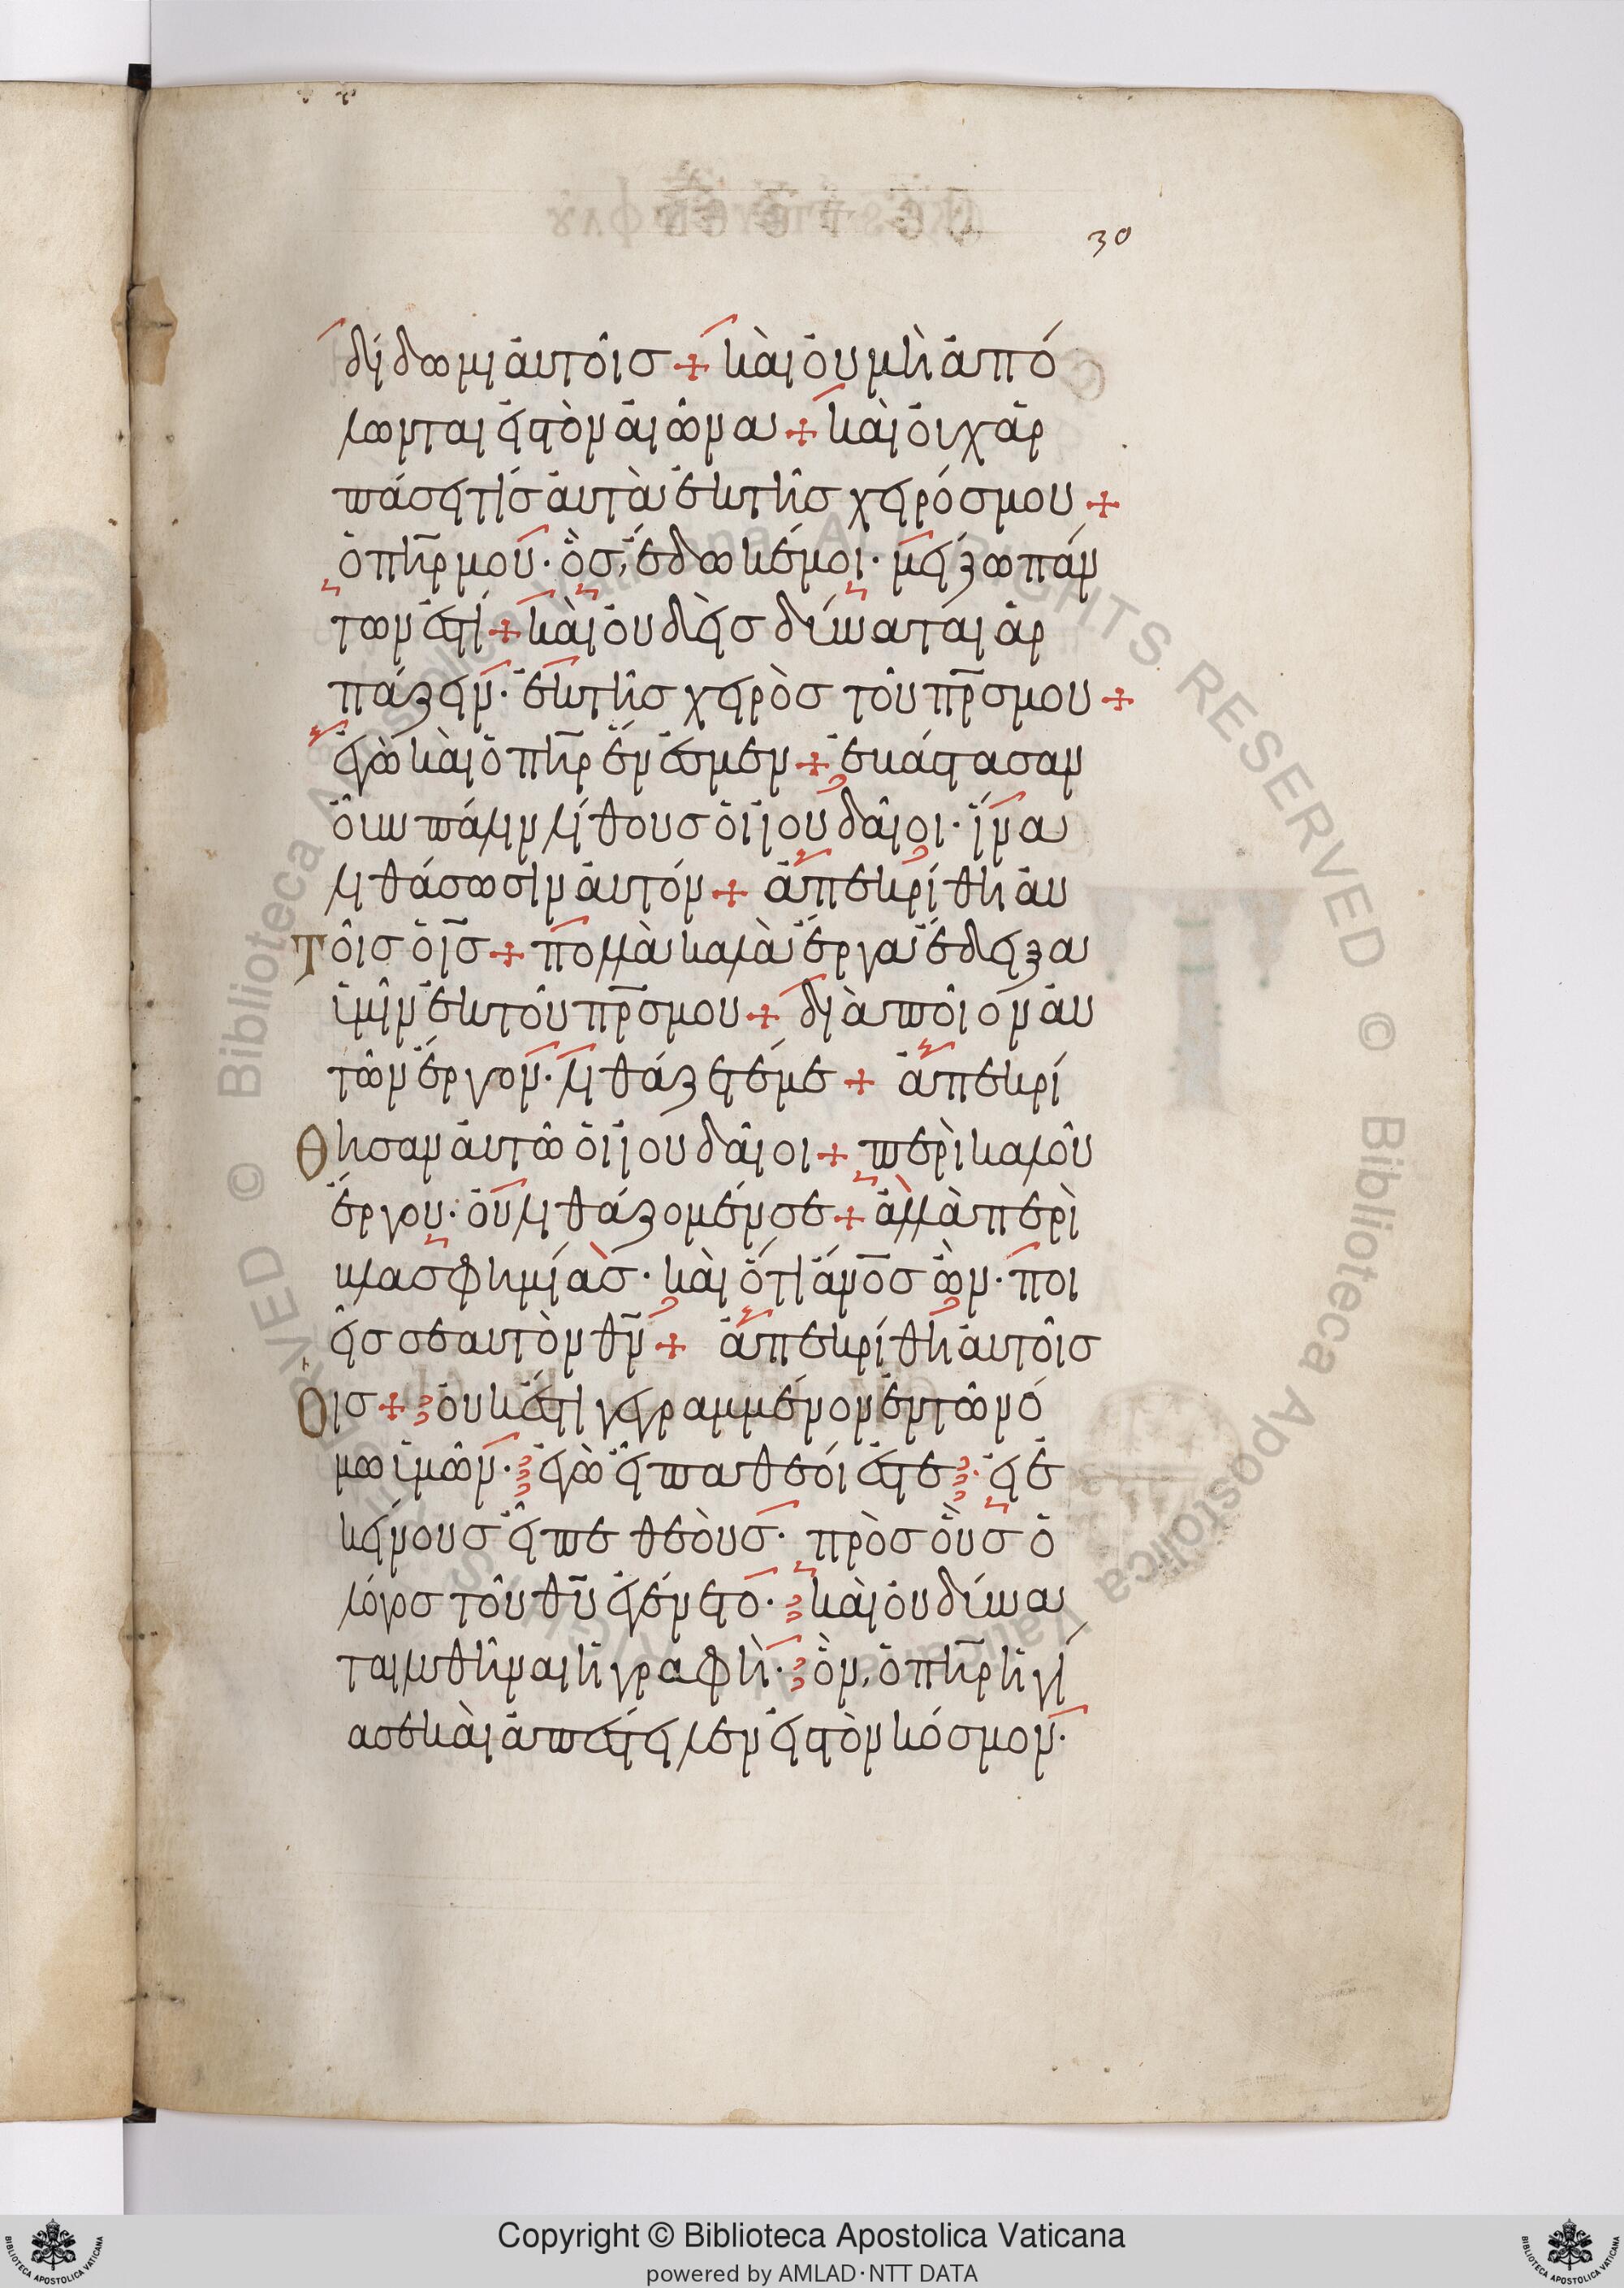 30
δίδωμι ἀυτοῖσ + κὰι ὀυ μὴ ἀπό
λωνται ἐις τὸν ἀιῶνα + κὰι ὀυχ ἁρ
πάσει τίσ ἀυτὰ ἐκ τῆσ χειρόσ μου +
ὁ πη̅ρ μου· ὃσ, ἔδωκέ μοι· μείζω πάν
των ἐστί + κὰι ὀυδεὶσ δύναται ἁρ
πάζειν· ἐκ τῆσ χειρὸσ τοῦ πρ̅σ μου +
ἐγὼ κὰι ὁ πη̅ρ ἕν ἐσμεν + ἐβάστασαν
ὀῦν πάλιν λίθουσ ὁι ϊουδᾶιοι· ἵνα
λιθάσωσιν ἀυτόν + ἀπεκρίθη ἀυ
τοῖσ ὁ ισ̅ + πολλὰ καλὰ ἔργα ἔδειξα
ὑμῖν ἐκ τοῦ πρ̅σ μου + διὰ ποῖον ἀυ
τῶν ἔργον· λιθάζετέ με + ἀπεκρί
θησαν ἀυτῶ ὁι ϊουδᾶιοι + περὶ καλοῦ
ἔργου· ὀυ λιθάζομέν σε + ἀλλὰ περὶ
βλασφημίασ· κὰι ὅτι ἀνο̅σ ὢν· ποι
εῖσ σεαυτὸν θν̅ + ἀπεκρίθη ἀυτοῖσ
ὁ ισ̅ + ὀυκ ἔστι γεγραμμένον ἐν τῶ νό
μω ὑμῶν· ἐγὼ ἐῖπα θεόι ἐστε· ἐι ἐ
κείνουσ ἐῖπε θεὸυσ· πρὸσ ὃυσ ὁ
λόγοσ τοῦ θυ̅ ἐγένετο· κὰι ὀυ δύνα
ται λυθῆναι ἡ γραφὴ· ὃν, ὁ πη̅ρ ἡγί
ασε κὰι ἀπέστειλεν ἐις τὸν κόσμον·
Copyright © Biblioteca Apostolica Vaticana
powered by AMLAD·NTT DATA